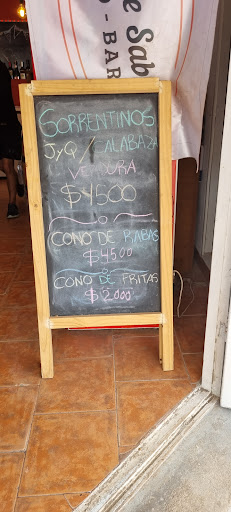 e Sab
O - BAR
SORRENTINOS
JyQ / CALABAZA
VERDURA
$4500
o
CONO DE RABAS
$4500
o
CONO DE FRITAS
$2000